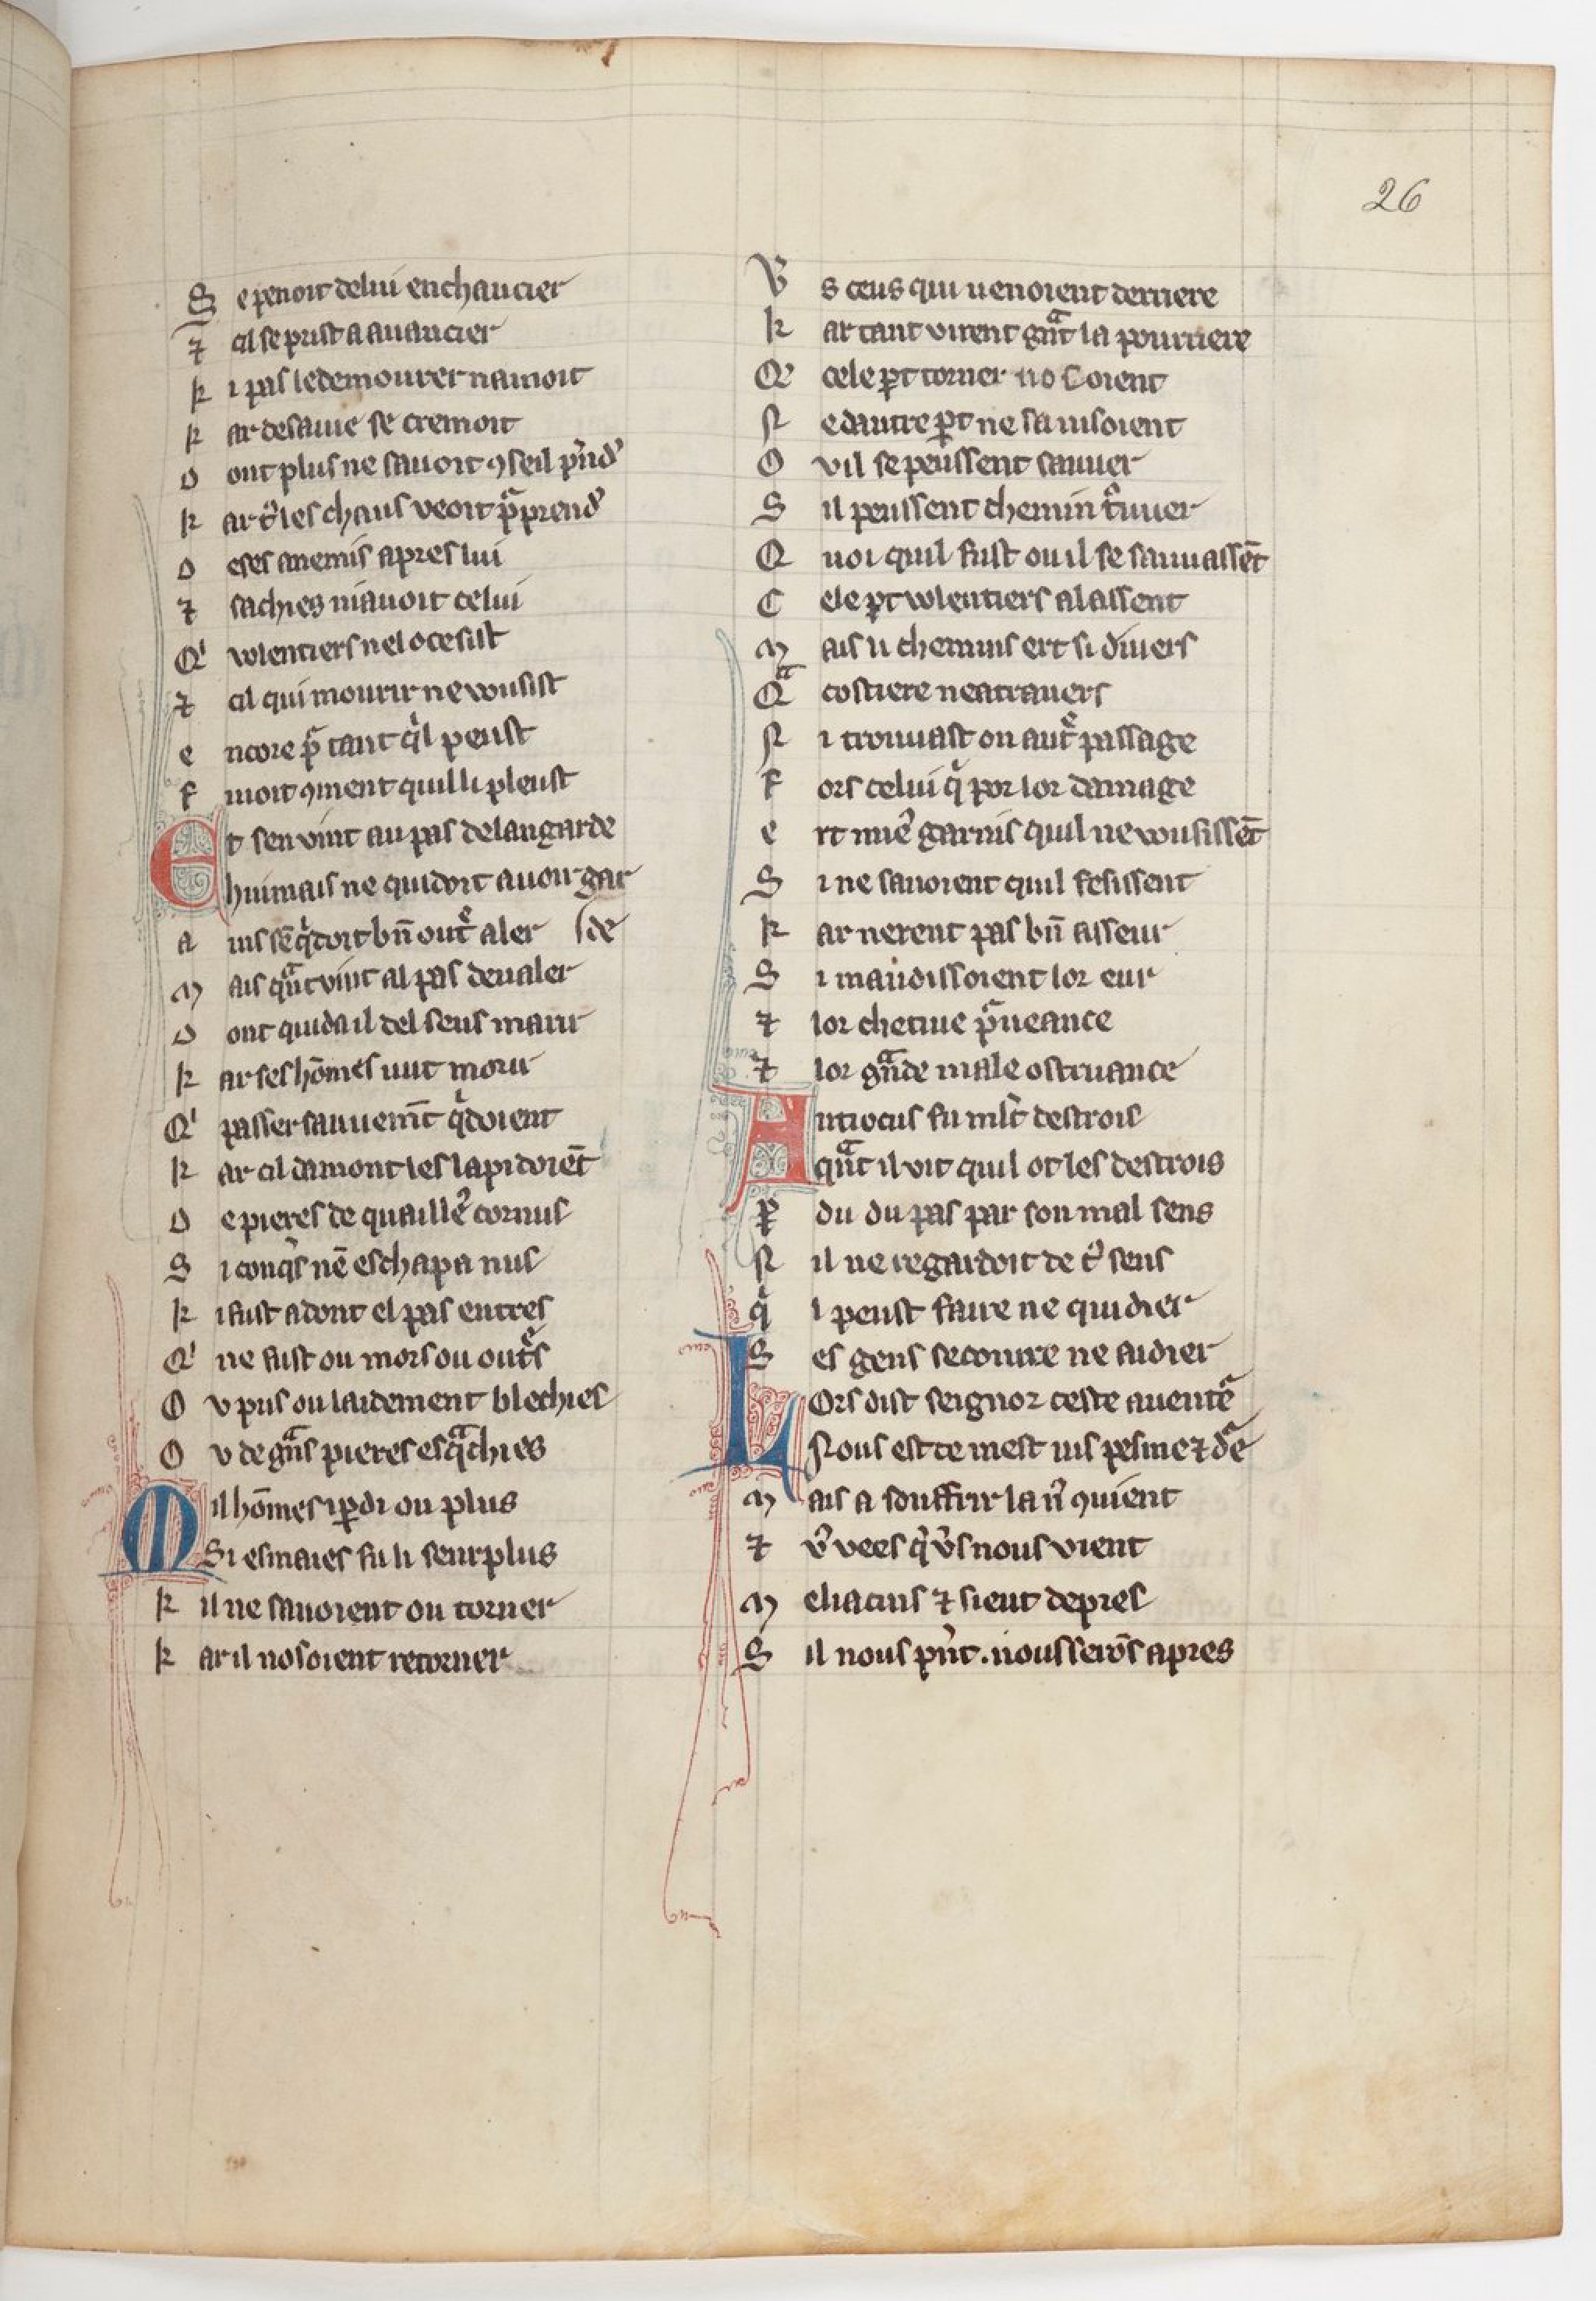 26
S e penoit de lui enchaucier
⁊ cil se prist a auancier
k i pas le demourer namoit
k ar de sa uie se cremoit
D ont plus ne sauoit ꝯseil pͬndᷣ
k ar tᷣ les chaus veoit pᷓprendᷣ
D e ses anemis apres lui
⁊ sachies ni auoit celui
Qͥ volentiers nel ocesist
⁊ cil qui mourir ne vousist
e ncore pᷓ tant qͥl peust
F uioit ꝯment quil li pleust
Et sen vint au pas de langarde
huimais ne quidoit auoir gar
a ins sēqͥdoit bn̄ outᷣ aler de
M ais qᷓnt vint al pas deualer
D ont quida il del sens marir
k ar ses hōmes uit morir
Qͥ passer sauuemt̄ qͥdoient
k ar cil damont les lapidoiēt
D e pieres de quaillᷣe cornus
S i conqͥs nē eschapa nus
k i fust adont el pas entres
Qͥ ne fust ou mors ou outᷣs
O v pris ou laidement blechies
O v de gᷓns pieres esqᷓchies
Mil hōmes i ꝑdi ou plus
Si esmaies fu li seurplus
k il ne sauoient ou torner
k ar il nosoient retorner
V̾ s ceus qui uenoient derriere
k ar tant virent gᷓnt la pourriere
Q̾ cele ꝑt torner nosoient
N e dautre ꝑt ne sauisoient
O v il se peussent sauuer
S il peussent chemin tͬuuer
Q uoi quil fust ou il se sauuassēt
C ele ꝑt volentiers alassent
M ais li chemins ert si diuers
Qᷓ costiere ne a trauers
N i trouuast on autᷣ passage
F ors celui qͥ por lor damage
e rt miᷣe garnis quil ne vousissēt
S i ne sauoient quil fesissent
k ar nerent pas bn̄ asseur
S i maudissoient lor eur
⁊ lor chetiue pᷓueance
⁊ lor gᷓnde male ostruance
Antiocus fu ml̄t destrois
qᷓnt il vit quil ot les destrois
P̱ du du pas par son mal sens
N il ne regardoit de tᷣ sens
qͥ l peust faire ne quidier
S es gens secourre ne aidier
LOrs dist seignor ceste auentᷣe
Nous est ce mest uis pesme ⁊ dᷣe
M ais a souffrir la nᷣ ꝯuient
⁊ vᷣ vees qͥ vᷣs nous vient
M eliacins ⁊ sieut de pres
S il nous pͬnt . nous serōs apres